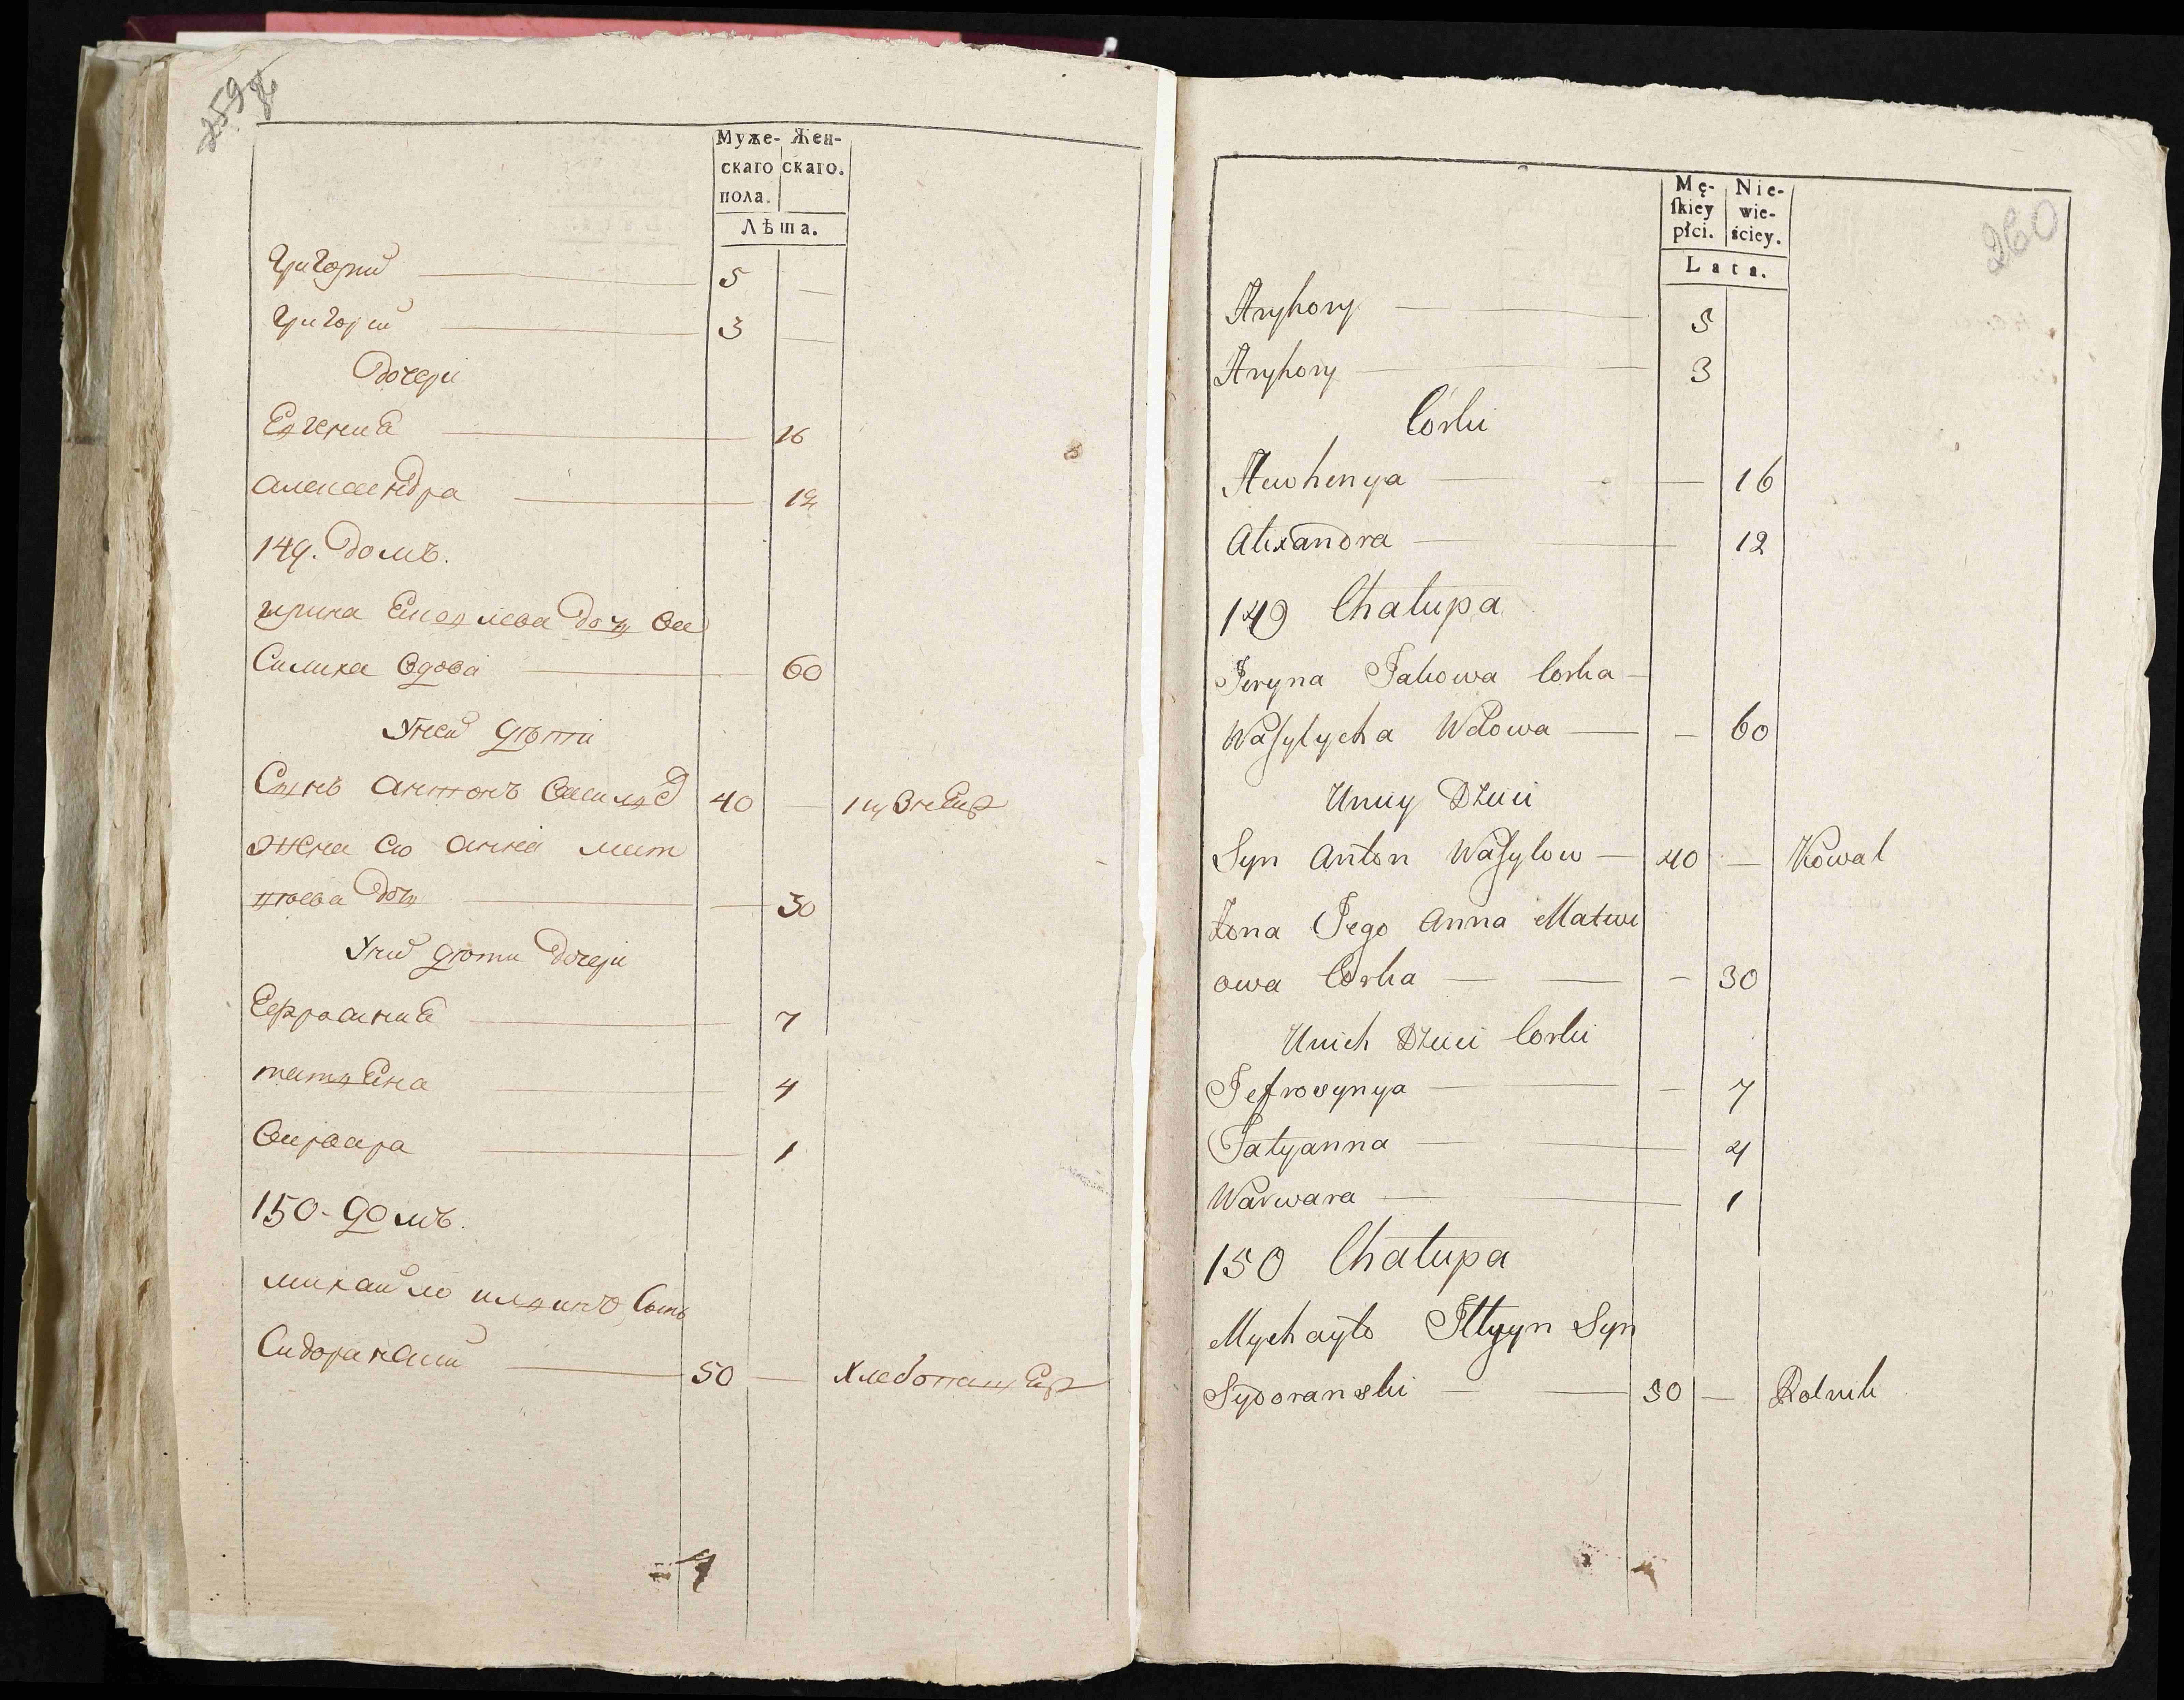 259 об
Муже- Жен-
скаго скаго.
пола.
Лѣта.
Григорий 5 —
Григорий 3 —
Дочери
Евгения 16
Александра 12
149. Домъ.
ирина Яковлева дочь Ва
Силиха вдова 60
У неи дѣти
Сынъ Антонъ Василев 40 —
Жена Ево Анна Мат
вѣева дочь — 30
У них дѣти дочери
Ефросиния 7
татьяна 4
Варвара 1
150 - домъ.
михаило ильинъ Сынъ
Сидоранский 50 — Хлебопашец
260
Mę- Nie-
skiey wie-
płci. ściey.
Lata.
Hryhory — 5
Hryhory — 3
Corki
Hewhenya — 16
Alixandra — 12
149 Chałupa
Jeryna Jakowa Corka —
Wasylycha Wdowa — — 60
Uniiy Dzieci
Syn Anton Wasylow — 40 — Kowal
Zona Jego Anna Matwi
owa Corka — — 30
Unich Dzieci Corki
Jefrosynya — — 7
Tatyanna — 4
Warwara — 1
150 Chałupa
Mychayło Illyyn Syn
Sydoranski — 50 — Rolnik